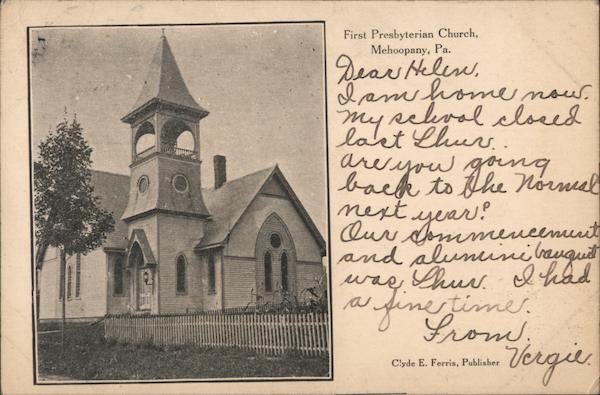 First Presbyterian Church,
Mehoopany, Pa.
Dear Helen.
I am home now.
My school closed
last Thur..
are you going
back to the Normal
next year?
Our commencement
and alumini banquet
was Thur. I had
a fine time.
From.
Vergie.
Clyde E. Ferris, Publisher